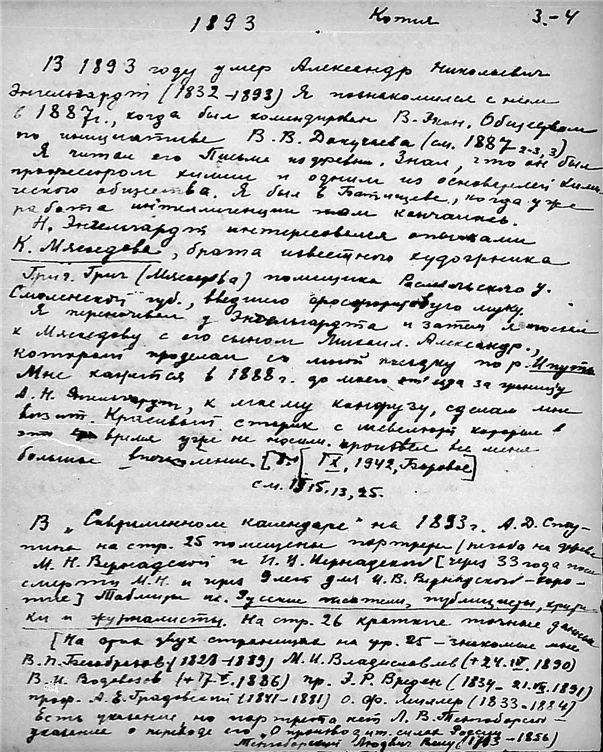 1893 Копия 3-4
В 1893 году умер Александр Николаевич
Энгельгардт (1832-1893) Я познакомился с ним
в 1887 г., когда был командирован В-Экон. Обществом
по инициативе В. В. Докучаева (см. 1887 2-3, 3)
Я читал его Письма из деревни. Знал, что он был
профессором химии и одним из основателей Хими-
ческого общества. Я был в Батищеве, когда уже
работа интеллигенции там кончилась.
Н. Энгельгардт интересовался опытами
К. Мясоедова, брата известного художника
Григ. Григ (Мясоедова) помещика Рославльского у.
Смоленской губ., введшего фосфоритовую муку.
Я переночевал у Энгельгардта и затем я поехал
к Мясоедову с его сыном Михаил. Александр.,
который проделал со мной поездку по р. Ипуть
Мне кажется в 1888 г. до моего отъезда за границу
А. Н. Энгельгардт, к моему конфузу, сделал мне
визит. Красивый старик с шевелюрой которые в
это время уже не носили, произвел на меня
большое впечатление. IX, 1942, Боровое]
см. 15.13, 25.
В „Современном календаре" на 1893 г. А. Д. Сту-
пина на стр. 25 помещены портреты
М. Н. Вернадской и И. В. Вернадского [через 33 года после
смерти М. Н. и через 9 лет для И. В. Вернадского - коро-
Таблицы Русские писатели, публицисты, крити-
ки и журналисты. На стр. 26 краткие точные данные
[На этих двух страницах на стр. 25 - знакомые мне
В. П. Безобразов (1828-1889) М. И. Владиславлев (+24.IV.1890)
В. И. Водовозов (+17.V.1886) пр. Э. Р. Вреден (1834-21.VII.1891)
проф. А. Е. Градовский (1841-1881) О. Ф. Миллер (1833-1884)
Есть указание, но портрета нет Л. В. Тенгоборский
указание о переводе его „О производит. силах России
Тенгоборский Людвиг Вал. (1793-1856)